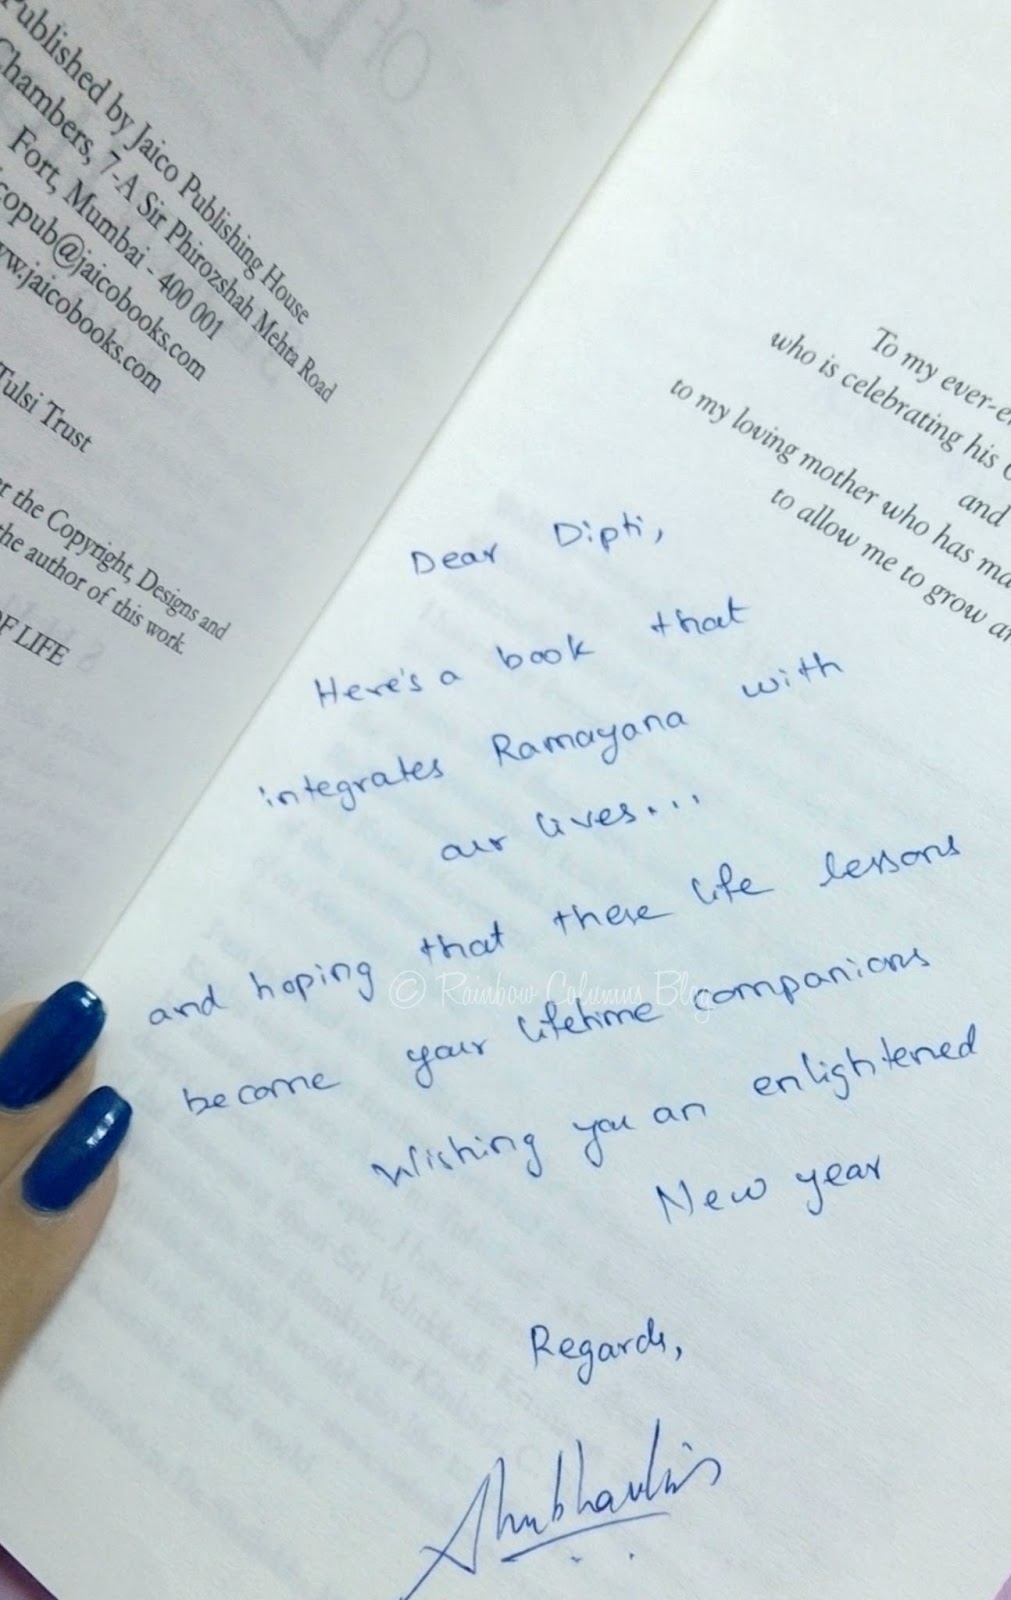 Published by Jaico Publishing House
Chambers, 7-A Sir Phirozshah Mehta Road
Fort, Mumbai - 400 001
copub@jaicobooks.com
www.jaicobooks.com
Tulsi Trust
the Copyright, Designs and
the author of this work.
OF LIFE
To my
who is celebrating his
and
to my loving mother who has
to allow me to grow
Dear Dipti,
Here's a book that
integrates Ramayana with
our lives...
and hoping that these life lessons
become your lifetime companions
© Rainbow Columns Blog
Wishing you an enlightened
New year
Regards,